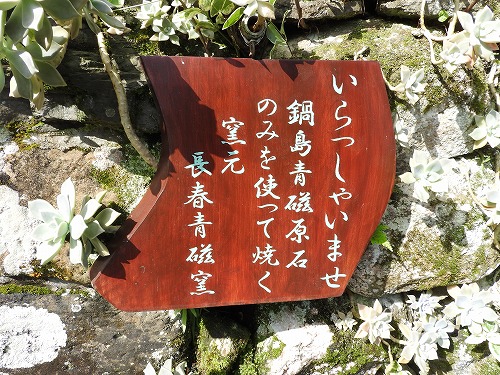 いらっしゃいませ
鍋島青磁原石
のみを使って焼く
窯元
長春青磁窯